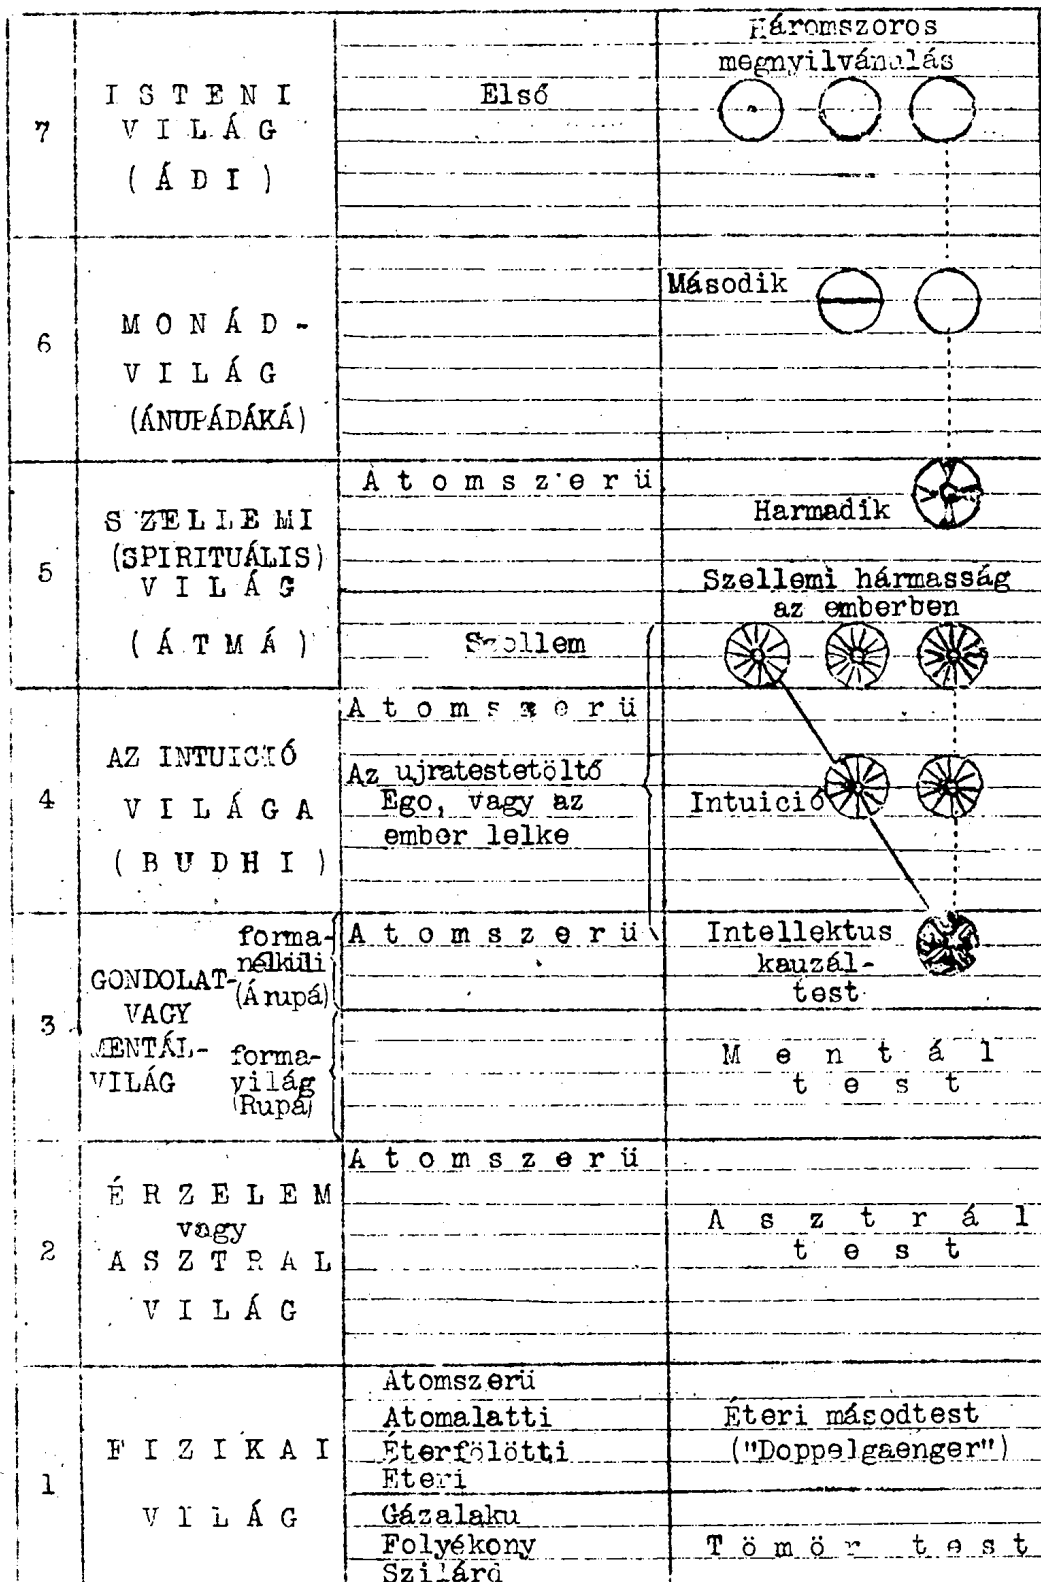 Háromszoros
megnyilvánulás
7
I S T E N I
V I L Á G
( Á D I )
Első
6
M O N Á D -
V I L Á G
(ÁNUPÁDÁKÁ)
Második
5
S ZELLEMI
(SPIRITUÁLIS)
V I L Á G
( Á T M Á )
Á t o m s z e r ü
Harmadik
Szellemi hármasság
az emberben
Szellem
4
AZ INTUICIÓ
V I L Á G A
( B U D H I )
A t o m s z e r ü
Az ujratestetöltő
Ego, vagy az
ember lelke
Intuició
3
GONDOLAT-
VAGY
MENTÁL-
VILÁG
forma-
nélküli
(Árupá)
forma-
világ
(Rupá)
A t o m s z e r ü
Intellektus
kauzál-
test
M e n t á l
t e s t
2
É R Z E L E M
vagy
A S Z T R A L
V I L Á G
A t o m s z e r ü
A s z t r á l
t e s t
1
F I Z I K A I
V I L Á G
Atomszerü
Atomalatti
Éterfölötti
Éteri
Gázalaku
Folyékony
Szilárd
Éteri másodtest
("Doppelgaenger")
T ö m ö r t e s t